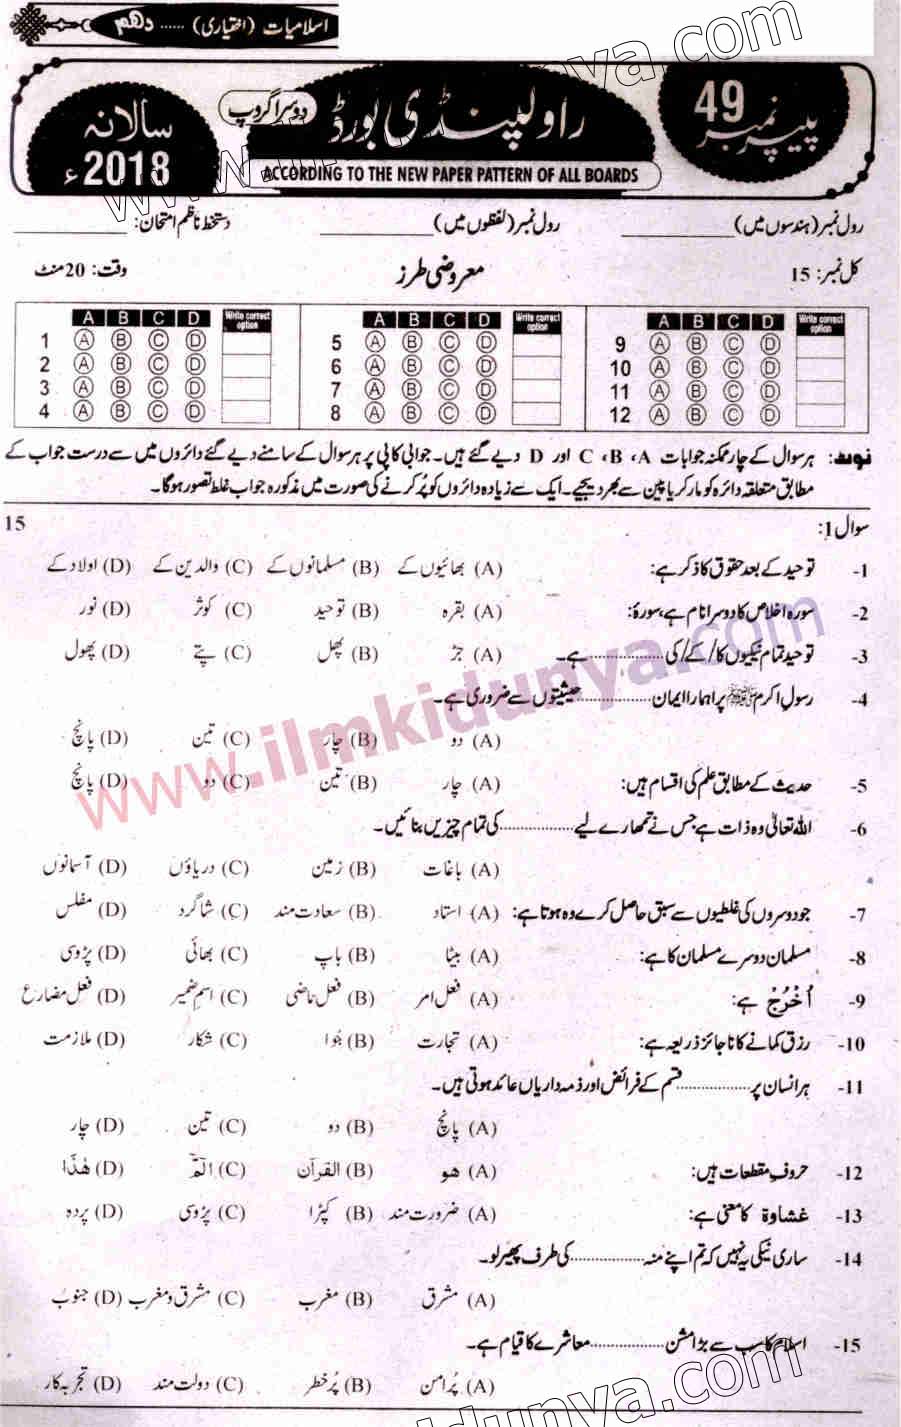 اسلامیات (اختیاری) ...... دہم
پیپر نمبر 49
راولپنڈی بورڈ
دوسرا گروپ
سالانہ 2018ء
ACCORDING TO THE NEW PAPER PATTERN OF ALL BOARDS
رول نمبر (ہندسوں میں) ____________ رول نمبر (لفظوں میں) ____________ دستخط ناظم امتحان: ____________
کل نمبر: 15 معروضی طرز وقت: 20 منٹ
A B C D Write correct option A B C D Write correct option A B C D Write correct option
1 A B C D 5 A B C D 9 A B C D
2 A B C D 6 A B C D 10 A B C D
3 A B C D 7 A B C D 11 A B C D
4 A B C D 8 A B C D 12 A B C D
نوٹ: ہر سوال کے چار ممکنہ جوابات A، B، C اور D دیے گئے ہیں۔ جوابی کاپی پر ہر سوال کے سامنے دیے گئے دائروں میں سے درست جواب کے
مطابق متعلقہ دائرہ کو مارکر یا پین سے بھر دیجیے۔ ایک سے زیادہ دائروں کو پُر کرنے کی صورت میں مذکورہ جواب غلط تصور ہوگا۔
سوال 1: 15
1- توحید کے بعد حقوق کا ذکر ہے: (A) بھائیوں کے (B) مسلمانوں کے (C) والدین کے (D) اولاد کے
2- سورہ اخلاص کا دوسرا نام ہے، سورۃ: (A) بقرہ (B) توحید (C) کوثر (D) نور
3- توحید تمام نیکیوں کا/کے/کی .............. ہے۔ (A) جڑ (B) پھل (C) پتے (D) پھول
4- رسول اکرم ﷺ پر ہمارا ایمان .............. حیثیتوں سے ضروری ہے۔
(A) دو (B) چار (C) تین (D) پانچ
5- حدیث کے مطابق علم کی اقسام ہیں: (A) چار (B) تین (C) دو (D) پانچ
6- اللہ تعالیٰ وہ ذات ہے جس نے تمہارے لیے .............. کی تمام چیزیں بنائیں۔
(A) باغات (B) زمین (C) دریاؤں (D) آسمانوں
7- جو دوسروں کی غلطیوں سے سبق حاصل کرے وہ ہوتا ہے: (A) استاد (B) سعادت مند (C) شاگرد (D) مفلس
8- مسلمان دوسرے مسلمان کا ہے: (A) بیٹا (B) باپ (C) بھائی (D) پڑوسی
9- اُخْرُجْ ہے: (A) فعل امر (B) فعل ماضی (C) اسم ضمیر (D) فعل مضارع
10- رزق کمانے کا ناجائز ذریعہ ہے: (A) تجارت (B) جُوا (C) شکار (D) ملازمت
11- ہر انسان پر .............. قسم کے فرائض اور ذمہ داریاں عائد ہوتی ہیں۔
(A) پانچ (B) دو (C) تین (D) چار
12- حروف مقطعات ہیں: (A) ھو (B) القرآن (C) الٓمّٓ (D) ھٰذَا
13- غشاوۃ کا معنی ہے: (A) ضرورت مند (B) کپڑا (C) پڑوسی (D) پردہ
14- ساری نیکی یہ نہیں کہ تم اپنے منہ .............. کی طرف پھیر لو۔
(A) مشرق (B) مغرب (C) مشرق و مغرب (D) جنوب
15- اسلام کا سب سے بڑا مشن .............. معاشرے کا قیام ہے۔
(A) پُر امن (B) پُر خطر (C) دولت مند (D) تجربہ کار
www.ilmkidunya.com